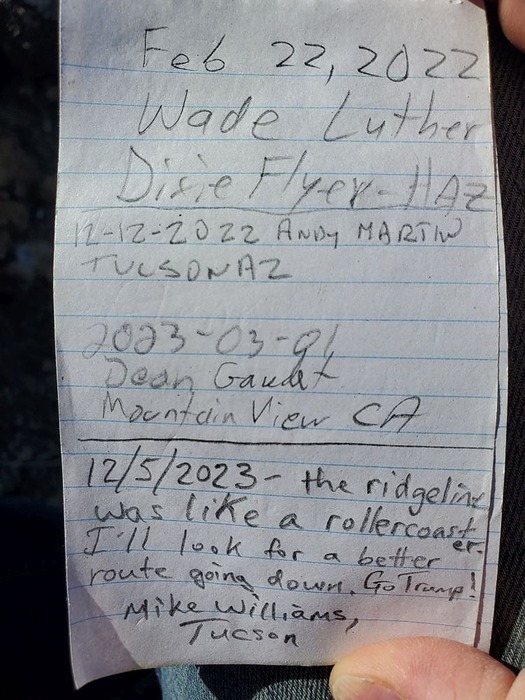 Feb 22, 2022
Wade Luther
Dixie Flyer-HAZ
12-12-2022 ANDY MARTIN
TUCSON AZ
2023-03-01
Dean Gaudet
Mountain View CA
12/5/2023- the ridgeline
was like a rollercoaster.
I'll look for a better
route going down. Go Trump!
Mike Williams,
Tucson